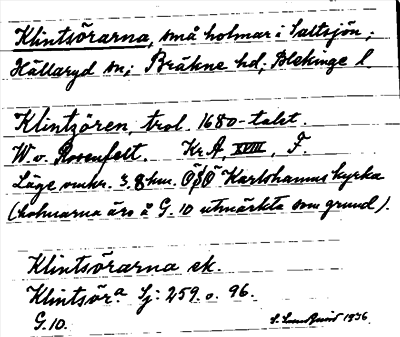 Klintsörarna, små holmar i Saltsjön;
Hällaryd sn; Bräkne hd; Blekinge l
Klintzören, trol. 1680-talet.
W. v. Rosenfelt. Kr. A, XVIII, F.
Läge omkr. 3.8 km. ÖSÖ Karlshamns kyrka
(holmarna äro å G. 10 utmärkta som grund).
Klintsörarna ek.
Klintsör.a Sj: 259. o. 96.
G. 10.
1936